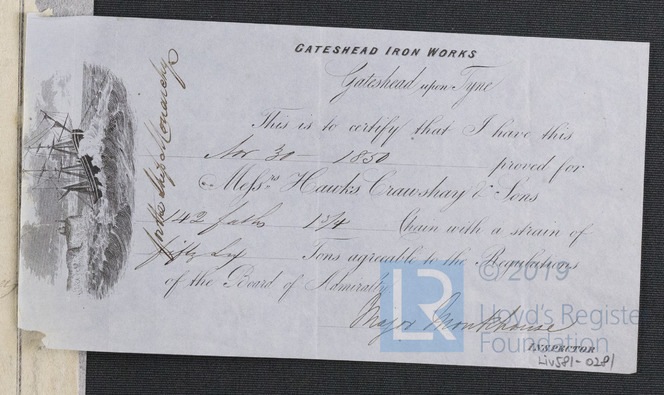 GATESHEAD IRON WORKS
Gateshead upon Tyne
This is to certify that I have this
Nov 30 - 1850 proved for
Messrs Hawks Crawshay & Sons
142 faths 1 3/4 Chain with a strain of
fifty six Tons agreeable to the Regulations
of the Board of Admiralty
Major Monkhouse
INSPECTOR
for the Ship Monarchy
LR
© 2019
Lloyd's Registe
Foundation
Liv581-0281